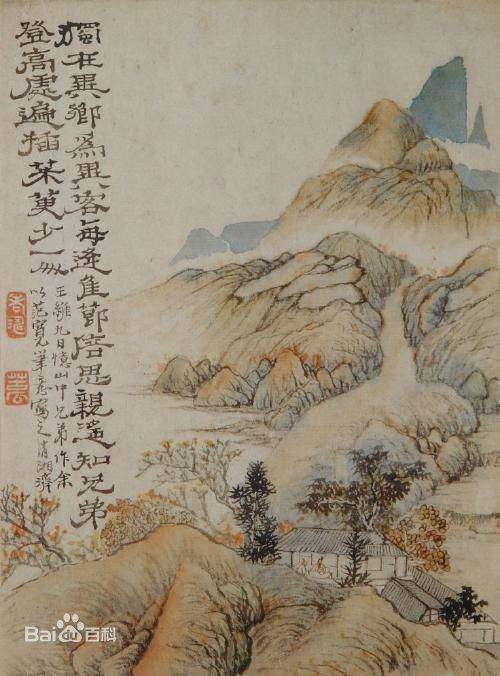 獨在異鄉為異客每逢佳節倍思親遙知兄弟
登高處遍插茱萸少一人
王維九日憶山中兄弟作余
以范寬筆意寫之清湘濟
Bai百科